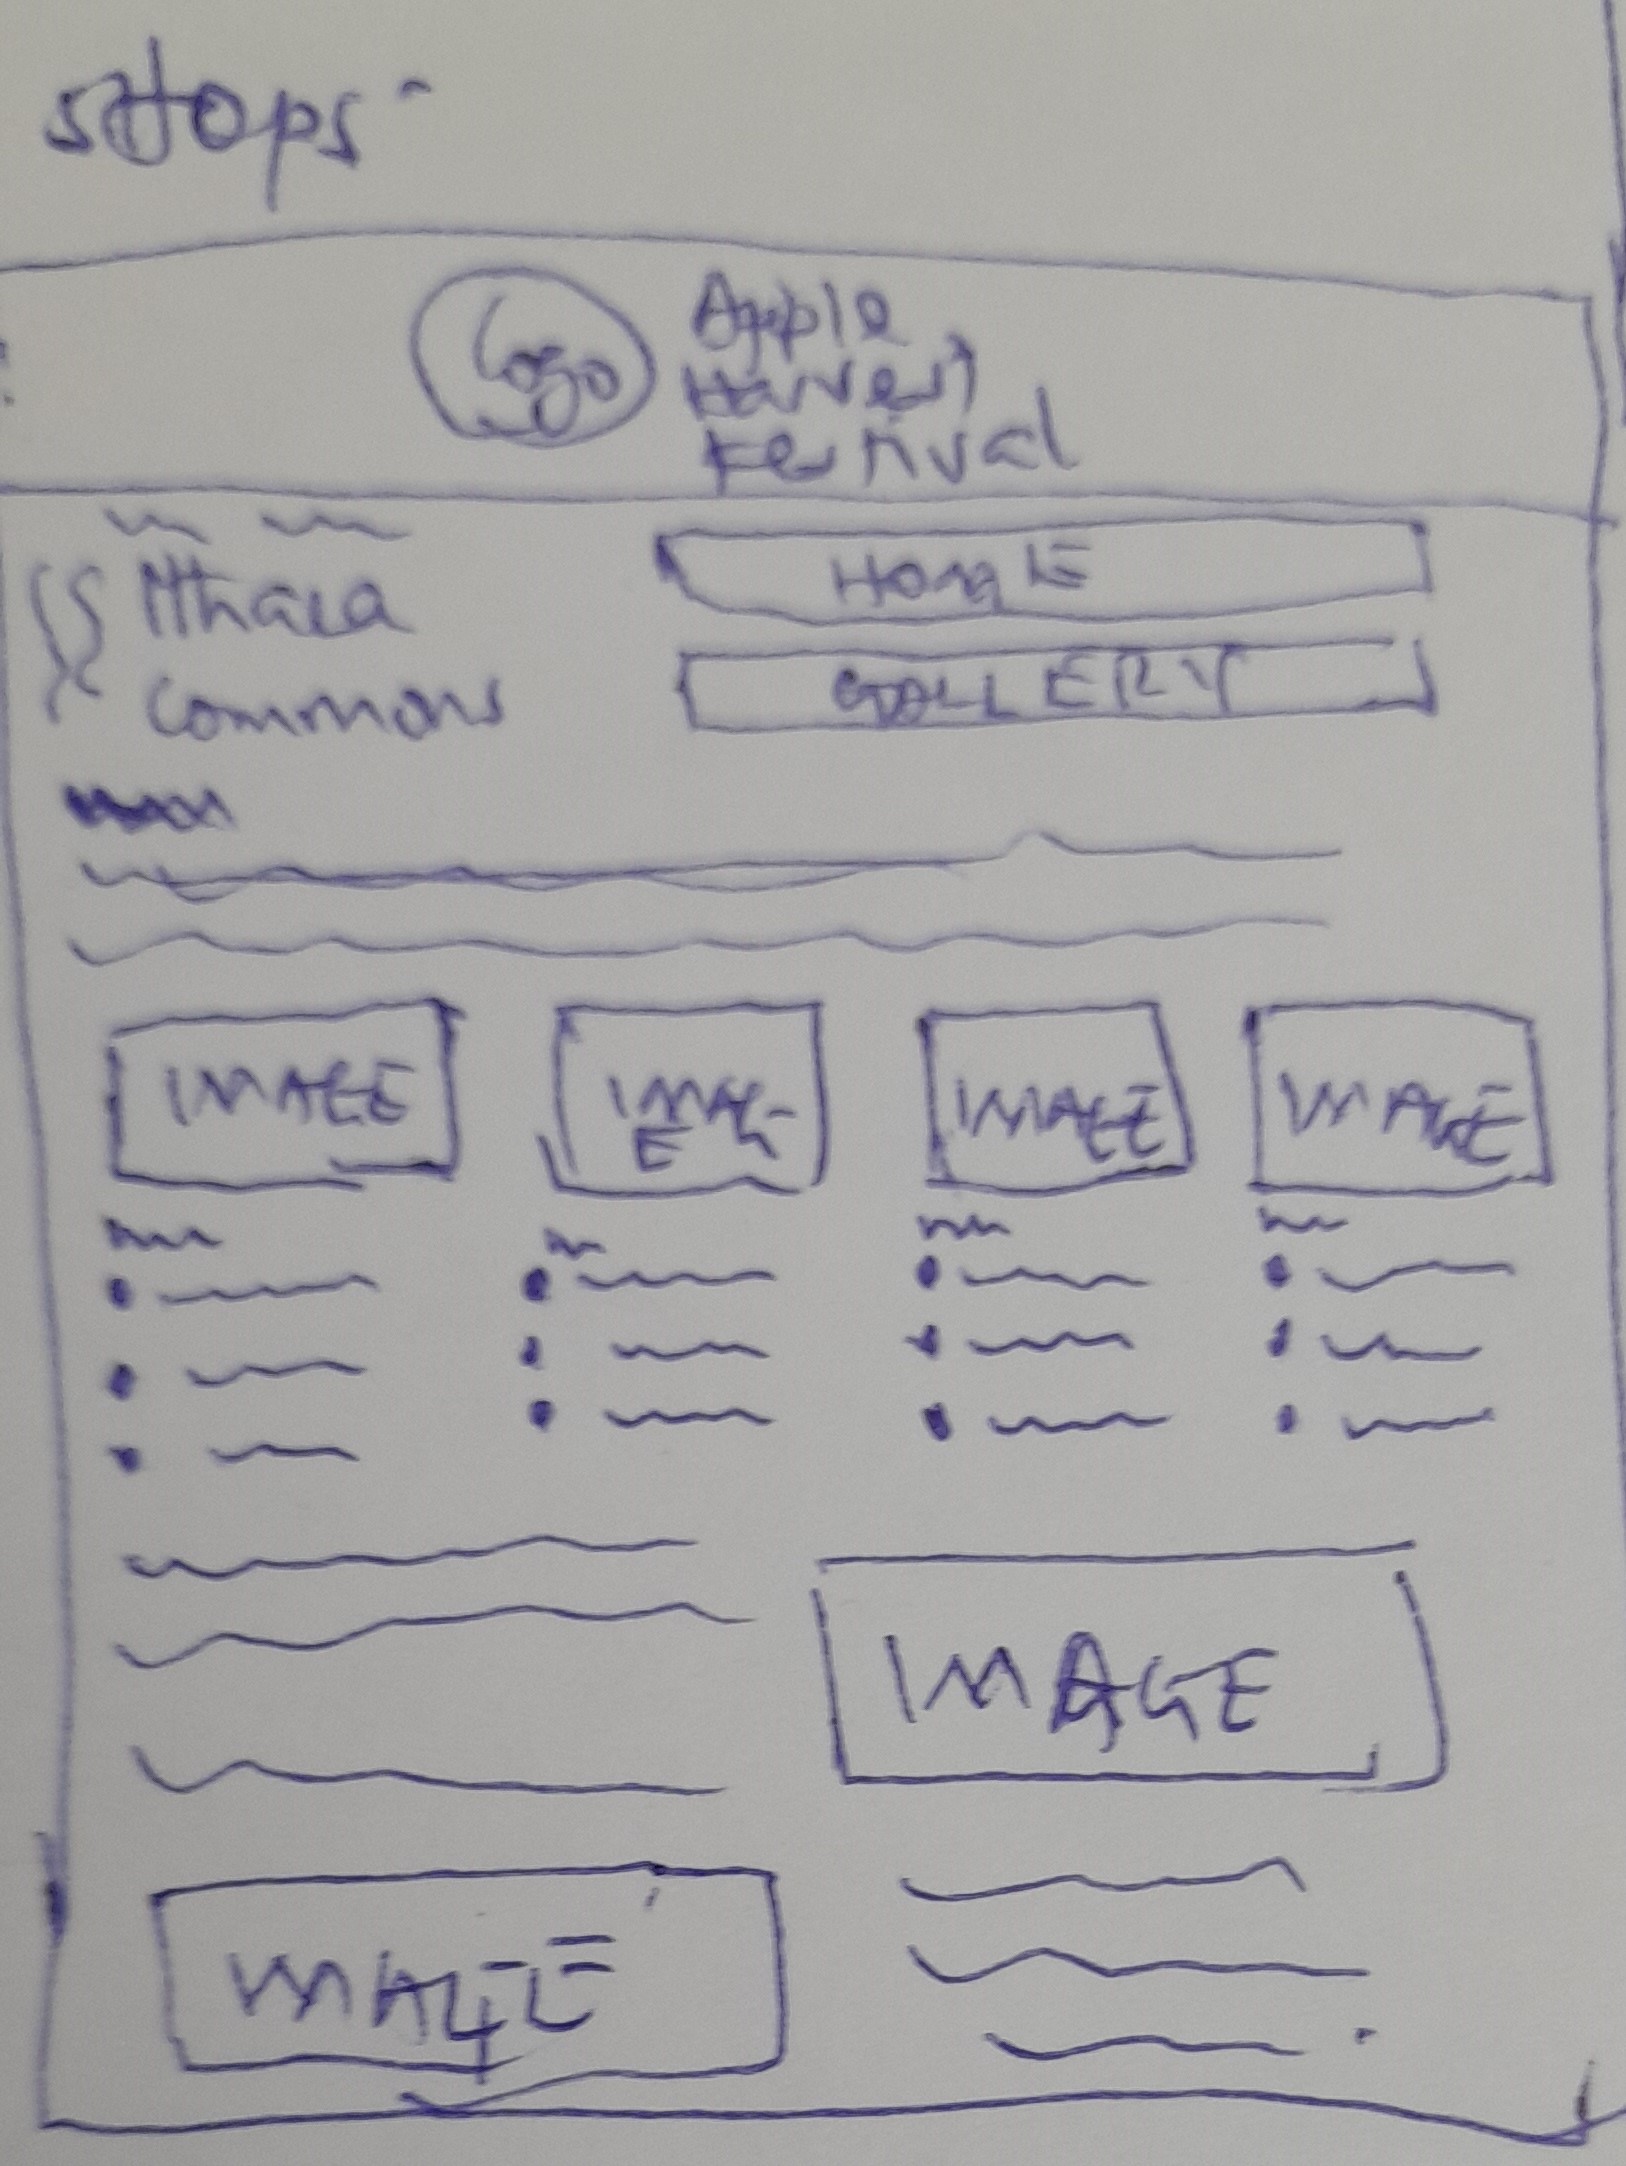 shops
Logo
Apple
Harvest
Festival
Ithaca
Commons
HOME
GALLERY
IMAGE IMAGE IMAGE IMAGE
IMAGE
IMAGE